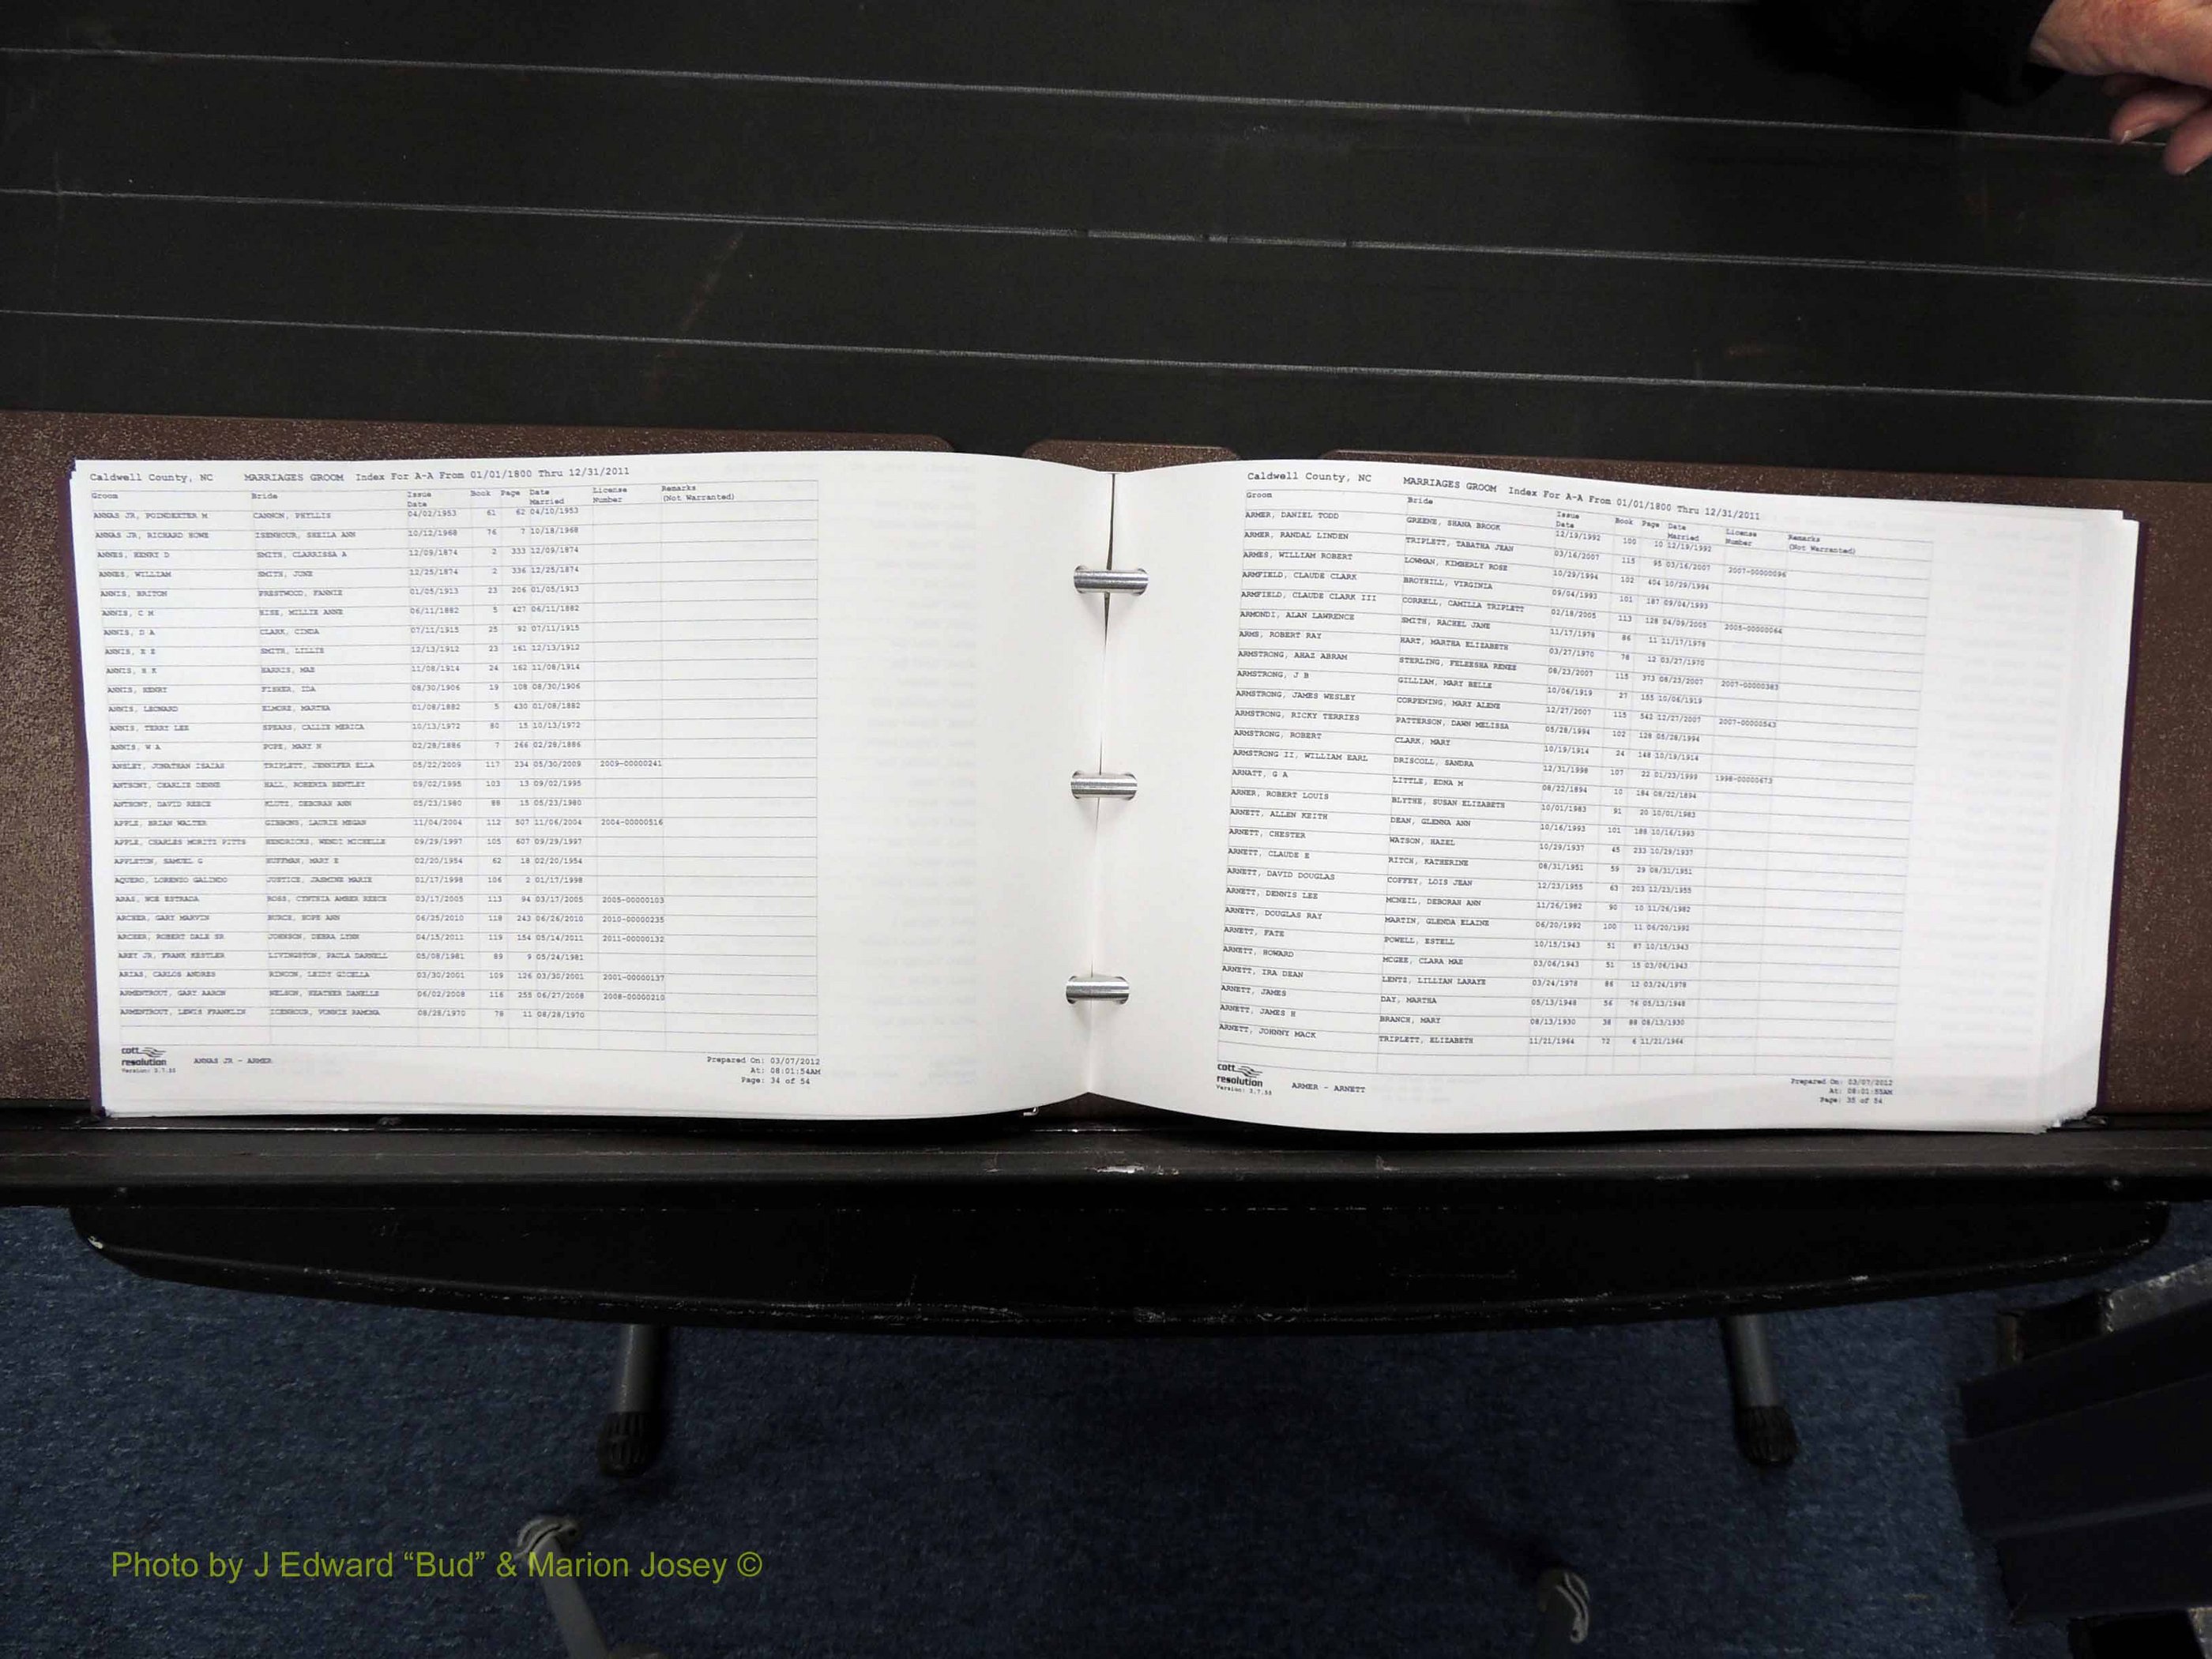 Caldwell County, NC MARRIAGES GROOM Index For A-A From 01/01/1800 Thru 12/31/2011
Groom Bride Issue Date Book Page Date Married License Number Remarks (Not Warranted)
ANNAS JR, POINDEXTER M CANNON, PHYLLIS 04/02/1953 61 62 04/10/1953
ANNAS JR, RICHARD HOWE ISENHOUR, SHEILA ANN 10/12/1968 76 7 10/18/1968
ANNES, HENRY D SMITS, CLARRISSA A 12/09/1874 2 333 12/09/1874
ANNES, WILLIAM SMITH, JUNE 12/25/1874 2 336 12/25/1874
ANNIS, BRITON PRESTWOOD, FANNIE 01/05/1913 23 206 01/05/1913
ANNIS, C M HISE, MILLIE ANNE 06/11/1882 5 427 06/11/1882
ANNIS, D A CLARK, CINDA 07/11/1915 25 92 07/11/1915
ANNIS, E E SMITH, LILLIE 12/13/1912 23 161 12/13/1912
ANNIS, H K HARRIS, MAE 11/08/1914 24 162 11/08/1914
ANNIS, HENRY FISHER, IDA 08/30/1906 19 108 08/30/1906
ANNIS, LEONARD ELMORE, MARTHA 01/08/1882 5 430 01/08/1882
ANNIS, TERRY LEE SPEARS, CALLIE MERICA 10/13/1972 80 15 10/13/1972
ANNIS, W A POPE, MARY N 02/28/1886 7 266 02/28/1886
ANSLEY, JONATHAN ISAIAS TRIPLETT, JENNIFER ELLA 05/22/2009 117 234 05/30/2009 2009-00000241
ANTHONY, CHARLIE DENNE HALL, ROBERTA BENTLEY 09/02/1995 103 13 09/02/1995
ANTHONY, DAVID REECE KLUTZ, DEBORAH ANN 05/23/1980 88 15 05/23/1980
APPLE, BRIAN WALTER GIBBONS, LAURIE MEGAN 11/04/2004 112 507 11/06/2004 2004-00000516
APPLE, CHARLES MORITZ PITTS HENDRICKS, WENDI MICHELLE 09/29/1997 105 607 09/29/1997
APPLETON, SAMUEL G HUFFMAN, MARY E 02/20/1954 62 18 02/20/1954
AQUERO, LORENZO GALINDO JUSTICE, JASMINE MARIE 01/17/1998 106 2 01/17/1998
ARAS, NOE ESTRADA ROSS, CYNTHIA AMBER REECE 03/17/2005 113 94 03/17/2005 2005-00000103
ARCHER, GARY MARVIN BURCH, HOPE ANN 06/25/2010 118 243 06/26/2010 2010-00000235
ARCHER, ROBERT DALE SR JOHNSON, DEBRA LYNN 04/15/2011 119 154 05/14/2011 2011-00000132
AREY JR, FRANK KESTLER LIVINGSTON, PAULA DARNELL 05/08/1981 89 9 05/24/1981
ARIAS, CARLOS ANDRES RINCON, LEIDY GICELLA 03/30/2001 109 126 03/30/2001 2001-00000137
ARMENTROUT, GARY AARON NELSON, HEATHER DANELLE 06/02/2008 116 255 06/27/2008 2008-00000210
ARMENTROUT, LEWIS FRANKLIN ICENHOUR, VONNIE RAMONA 08/28/1970 78 11 08/28/1970
cott
resolution ANNAS JR - ARMER Prepared On: 03/07/2012
Version: 3.7.33 At: 08:01:54AM
Page: 34 of 54
Caldwell County, NC MARRIAGES GROOM Index For A-A From 01/01/1800 Thru 12/31/2011
Groom Bride Issue Date Book Page Date Married License Number Remarks (Not Warranted)
ARMER, DANIEL TODD GREENE, SHANA BROOK 12/19/1992 100 10 12/19/1992
ARMER, RANDAL LINDEN TRIPLETT, TABATHA JEAN 03/16/2007 115 95 03/16/2007 2007-00000096
ARMES, WILLIAM ROBERT LOWMAN, KIMBERLY ROSE 10/29/1994 102 404 10/29/1994
ARMFIELD, CLAUDE CLARK BROYHILL, VIRGINIA 09/04/1993 101 187 09/04/1993
ARMFIELD, CLAUDE CLARK III CORRELL, CAMILLA TRIPLETT 02/18/2005 113 128 04/09/2005 2005-00000064
ARMONDI, ALAN LAWRENCE SMITH, RACHEL JANE 11/17/1978 86 11 11/17/1978
ARMS, ROBERT RAY HART, MARTHA ELIZABETH 03/27/1970 78 12 03/27/1970
ARMSTRONG, AHAZ ABRAM STERLING, FELEESHA RENEE 08/23/2007 115 373 08/23/2007 2007-00000383
ARMSTRONG, J B GILLIAM, MARY BELLE 10/06/1919 27 155 10/06/1919
ARMSTRONG, JAMES WESLEY CORPENING, MARY ALENE 12/27/2007 115 542 12/27/2007 2007-00000543
ARMSTRONG, RICKY TERRIES PATTERSON, DAWN MELISSA 05/28/1994 102 128 05/28/1994
ARMSTRONG, ROBERT CLARK, MARY 10/19/1914 24 148 10/19/1914
ARMSTRONG II, WILLIAM EARL DRISCOLL, SANDRA 12/31/1998 107 22 01/23/1999 1998-00000673
ARNATT, G A LITTLE, EDNA M 08/22/1894 10 184 08/22/1894
ARNER, ROBERT LOUIS BLYTHE, SUSAN ELIZABETH 10/01/1983 91 20 10/01/1983
ARNETT, ALLEN KEITH DEAN, GLENNA ANN 10/16/1993 101 188 10/16/1993
ARNETT, CHESTER WATSON, HAZEL 10/29/1937 45 233 10/29/1937
ARNETT, CLAUDE E RITCH, KATHERINE 08/31/1951 59 29 08/31/1951
ARNETT, DAVID DOUGLAS COFFEY, LOIS JEAN 12/23/1955 63 203 12/23/1955
ARNETT, DENNIS LEE MCNEIL, DEBORAH ANN 11/26/1982 90 10 11/26/1982
ARNETT, DOUGLAS RAY MARTIN, GLENDA ELAINE 06/20/1992 100 11 06/20/1992
ARNETT, FATE POWELL, ESTELL 10/15/1943 51 87 10/15/1943
ARNETT, HOWARD MCGEE, CLARA MAE 03/06/1943 51 15 03/06/1943
ARNETT, IRA DEAN LENTZ, LILLIAN LARAYE 03/24/1978 86 12 03/24/1978
ARNETT, JAMES DAY, MARTHA 05/13/1948 56 76 05/13/1948
ARNETT, JAMES H BRANCH, MARY 08/13/1930 38 88 08/13/1930
ARNETT, JOHNNY MACK TRIPLETT, ELIZABETH 11/21/1964 72 6 11/21/1964
cott
resolution ARMER - ARNETT Prepared On: 03/07/2012
Version: 3.7.33 At: 08:01:55AM
Page: 35 of 54
Photo by J Edward “Bud” & Marion Josey ©